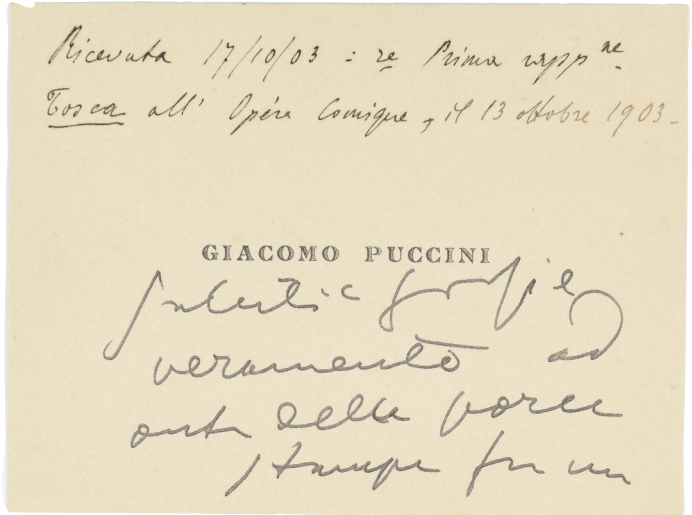 Ricevuta 17/10/03 : re Prima rapp.ne
Tosca all' Opéra Comique, il 13 ottobre 1903 -
GIACOMO PUCCINI
saluti e grazie
veramente ad
onta della porca
stampa fu un